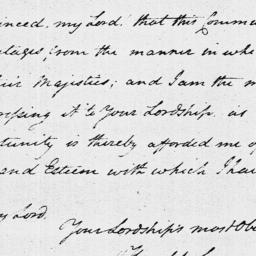 inced, my Lord, that this Commun
from the manner in whi
ir Majesties; and I am the m
ressing it to Your Lordship, as
tunity is thereby afforded me o
and Esteem with which I hav
y Lord,
Your Lordship's most Obe